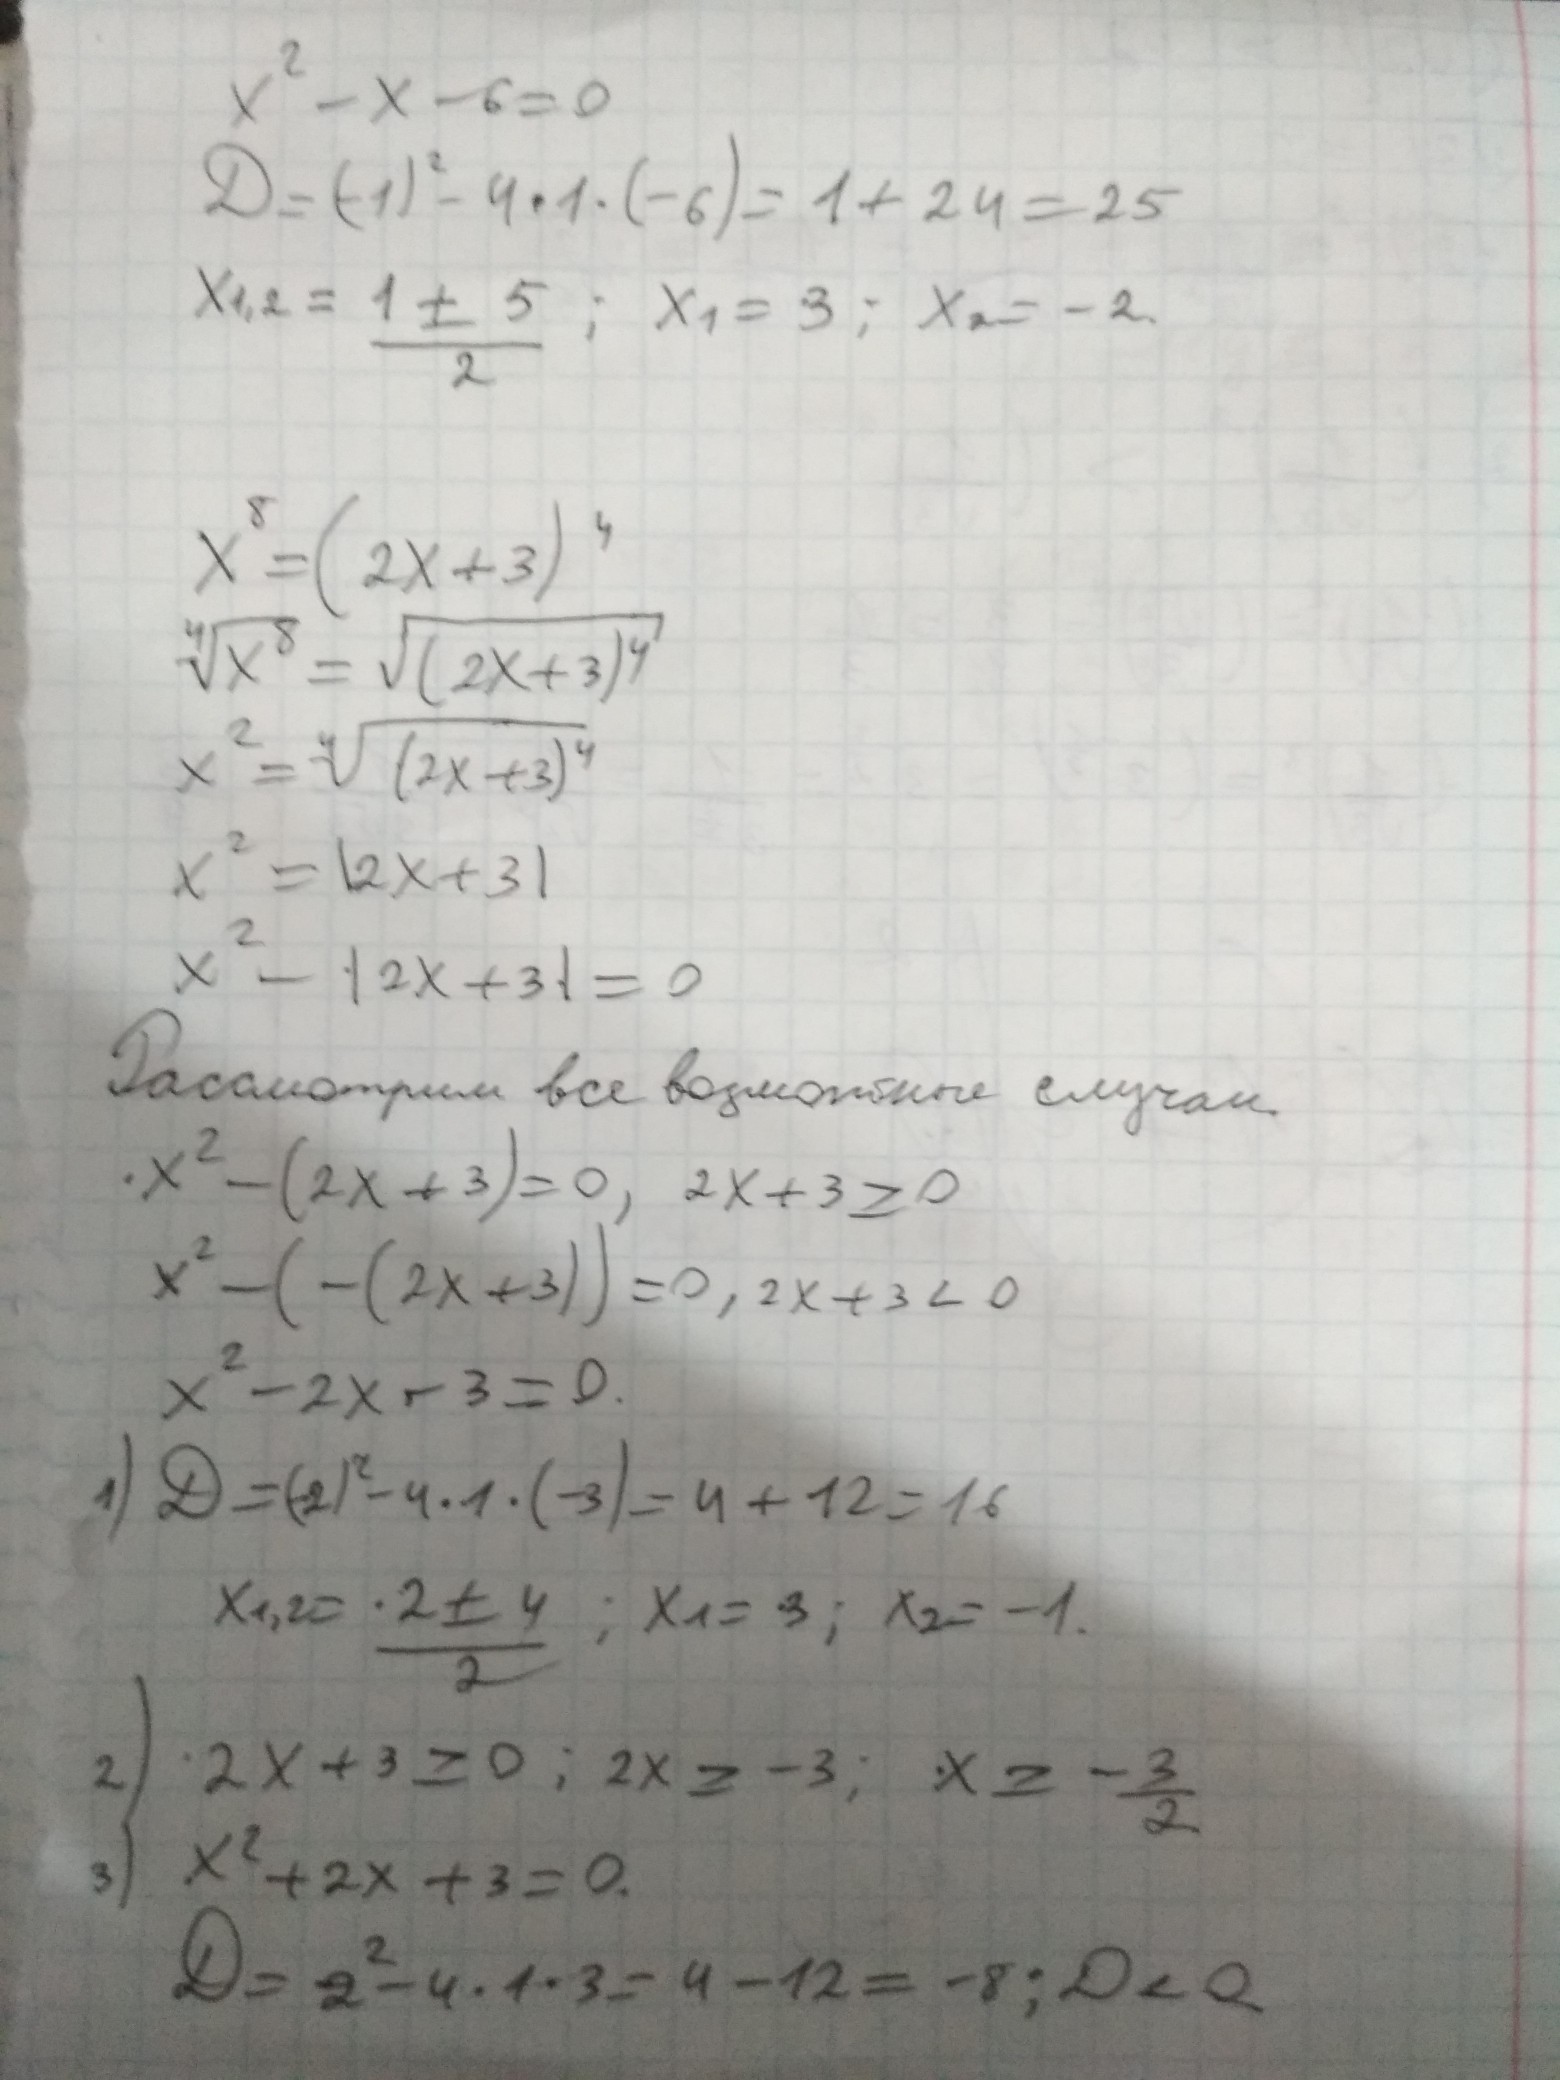 x² - x - 6 = 0
D = (-1)² - 4·1·(-6) = 1 + 24 = 25
x₁,₂ = (1 ± 5)/2 ; x₁ = 3 ; x₂ = -2.
x⁸ = (2x + 3)⁴
⁴√x⁸ = √(2x + 3)⁴
x² = ⁴√(2x + 3)⁴
x² = |2x + 3|
x² - |2x + 3| = 0
Рассмотрим все возможные случаи.
·x² - (2x + 3) = 0, 2x + 3 ≥ 0
x² - (-(2x + 3)) = 0, 2x + 3 < 0
x² - 2x - 3 = 0.
1) D = (-2)² - 4·1·(-3) = 4 + 12 = 16
x₁,₂ = (2 ± 4)/2 ; x₁ = 3 ; x₂ = -1.
2) 2x + 3 ≥ 0 ; 2x ≥ -3 ; x ≥ -3/2
3) x² + 2x + 3 = 0.
D = 2² - 4·1·3 = 4 - 12 = -8 ; D < 0